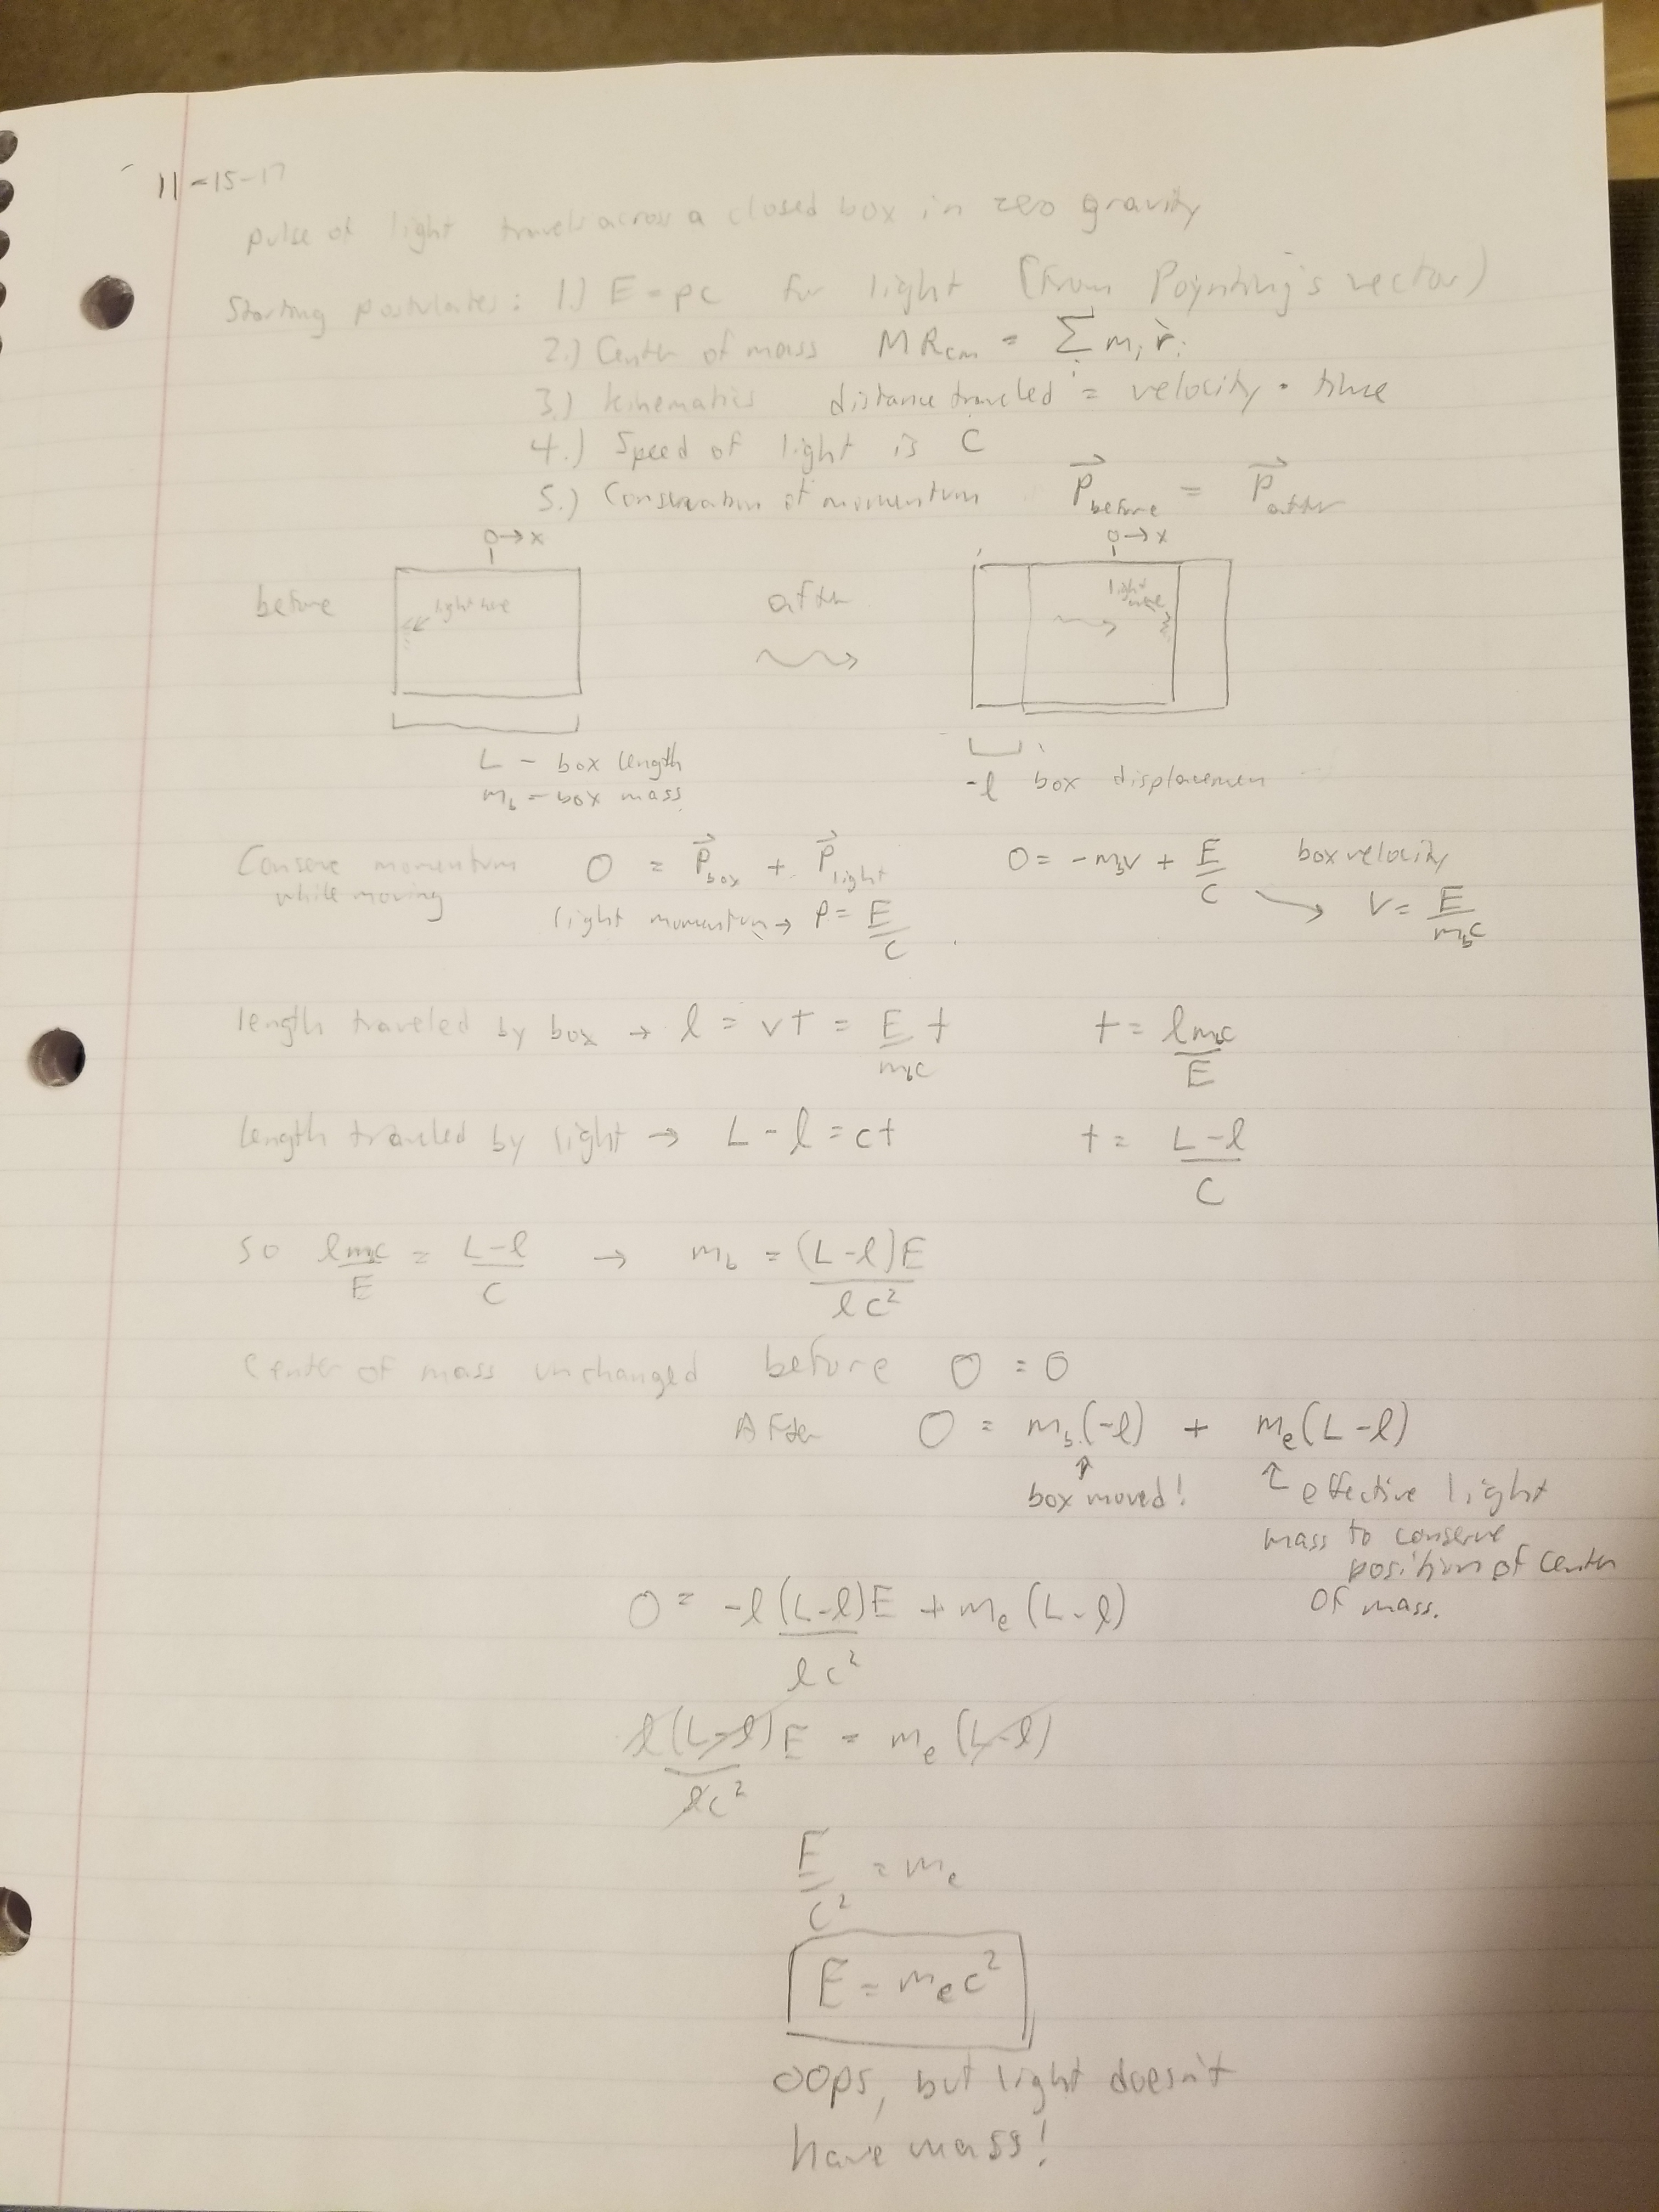 11-15-17
pulse of light travels across a closed box in zero gravity
Starting postulates: 1.) E = pc for light (from Poynting's vector)
2.) Center of mass M Rcm = Σ mᵢ r⃗ᵢ
i
3.) kinematics distance traveled = velocity · time
4.) Speed of light is C
5.) Conservation of momentum P⃗before = P⃗after
0→x 0→x
before light here after light here
L - box length
m_b - box mass
-l box displacemen
Conserve momentum while moving 0 = P⃗box + P⃗light 0 = -m_b v + E/C box velocity
light momentum → p = E/C v = E/(m_b c)
length traveled by box → l = vt = E/(m_b c) t t = l m_b c/E
length traveled by light → L - l = ct t = (L-l)/C
so l m_b c/E = (L-l)/C → m_b = (L-l)E/(l c²)
Center of mass unchanged before 0 = 0
After 0 = m_b(-l) + m_e(L-l)
box moved! effective light
mass to conserve
position of center
of mass.
0 = -l (L-l)E/(l c²) + m_e (L-l)
l(L-l)E/(l c²) = m_e (L-l)
E/c² = m_e
E = m_e c²
oops, but light doesn't
have mass!